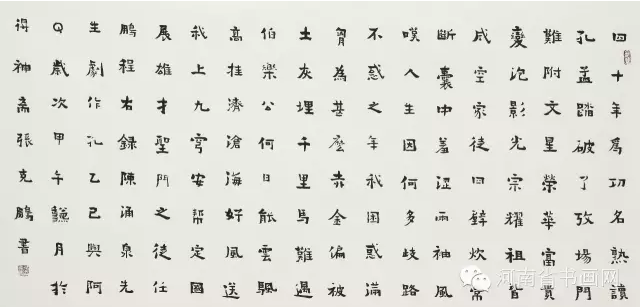 四十年為功名熟讀
孔孟踏破了攷場門
難附文星榮華富貴
變泡影光宗耀祖皆
成空家徒四壁炊常
斷囊中羞澀兩袖風
嘆人生因何多歧路
不惑之年我困惑滿
胷為甚麼赤金偏被
土灰埋千里馬難遇
伯樂公何日能雲颿
高挂濟滄海好風送
我上九穹安帮定國
展雄才聖門之徒任
鵬程右錄陳涌泉先
生劇作孔乙己與阿
Q歲次甲午月於
得神斋張克鵬書
河南省书画网